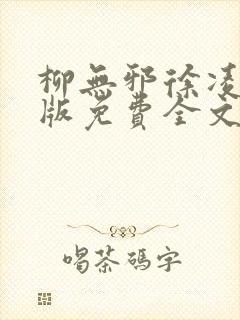 柳無邪徐凌
版免費全文
喝茶碼字